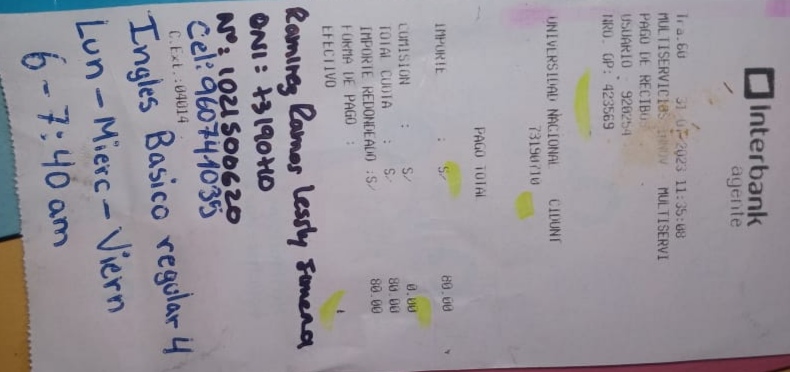 Interbank
agente
Tra.60 31-07-2023 11:35:08
MULTISERVICIOS MULTISERVI
PAGO DE RECIBO
USUARIO : 920254
NRO. GP: 423569
UNIVERSIDAD NACIONAL CIDUNT
73190710
PAGO TOTAL
IMPORTE : S/ 80.00
COMISION : S/ 0.00
TOTAL CUOTA : S/ 80.00
IMPORTE REDONDEADO :S/ 80.00
FORMA DE PAGO :
EFECTIVO
Ramirez Ramos Lessly Jimena
DNI: 73190710
N°: 1021500620
Cel: 960741035
C.Ext.:04014
Ingles Basico regular 4
Lun - Mierc - Viern
6 - 7:40 am